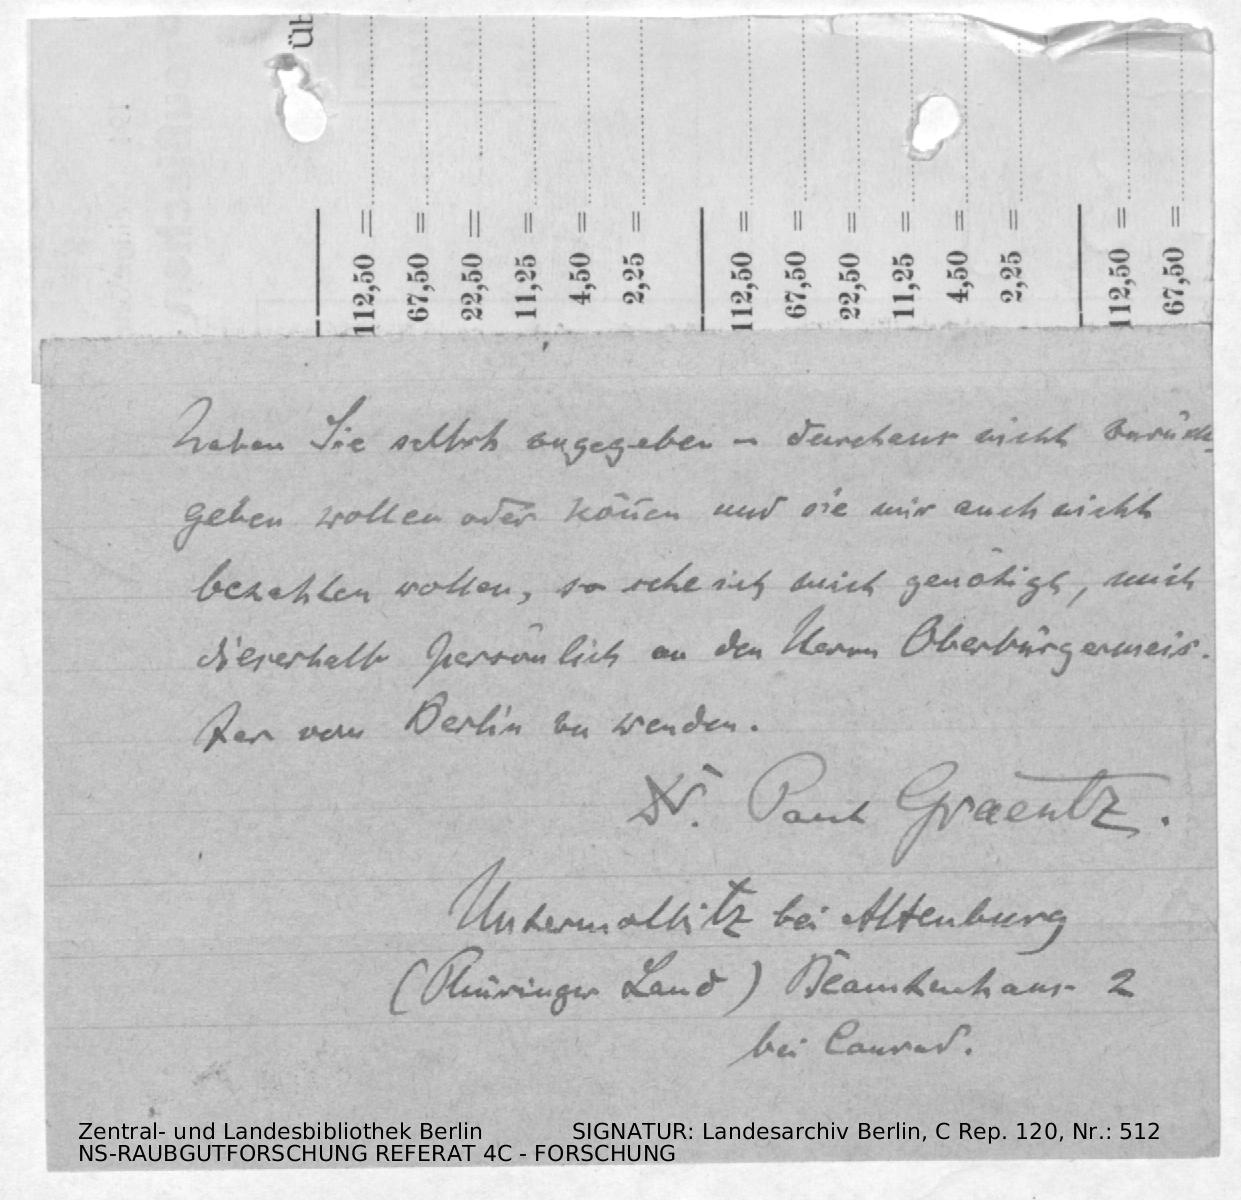 üb
112,50 =
67,50 =
22,50 =
11,25 =
4,50 =
2,25 =
112,50 =
67,50 =
22,50 =
11,25 =
4,50 =
2,25 =
112,50 =
67,50 =
haben Sie selbst angegeben – durchaus nicht zurück-
geben wollen oder können und sie mir auch nicht
bezahlen wollen, so sehe ich mich genötigt, mich
dieserhalb persönlich an den Herrn Oberbürgermeis-
ter von Berlin zu wenden.
Dr. Paul Graentz.
Untermolbitz bei Altenburg
(Thüringer Land) Beamtenhaus 2
bei Conrad.
Zentral- und Landesbibliothek Berlin SIGNATUR: Landesarchiv Berlin, C Rep. 120, Nr.: 512
NS-RAUBGUTFORSCHUNG REFERAT 4C - FORSCHUNG